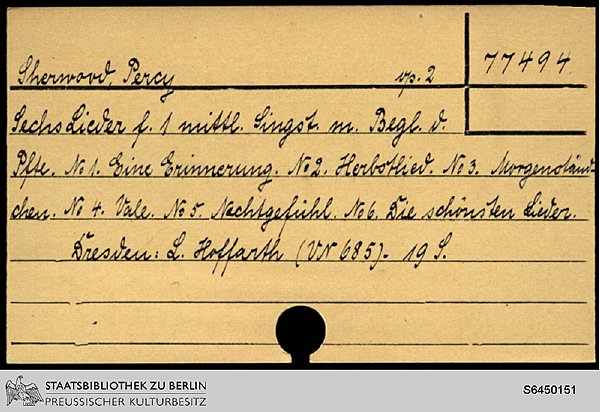 Sherwood, Percy op. 2 77494
Sechs Lieder f. 1 mittl. Singst. m. Begl. d.
Pfte. No 1. Eine Erinnerung. No 2. Herbstlied. No 3. Morgenständ-
chen. No 4. Vale. No 5. Nachtgefühl. No 6. Die schönsten Lieder.
Dresden: L. Hoffarth (VN 685). 19 S.
STAATSBIBLIOTHEK ZU BERLIN
PREUSSISCHER KULTURBESITZ
S6450151